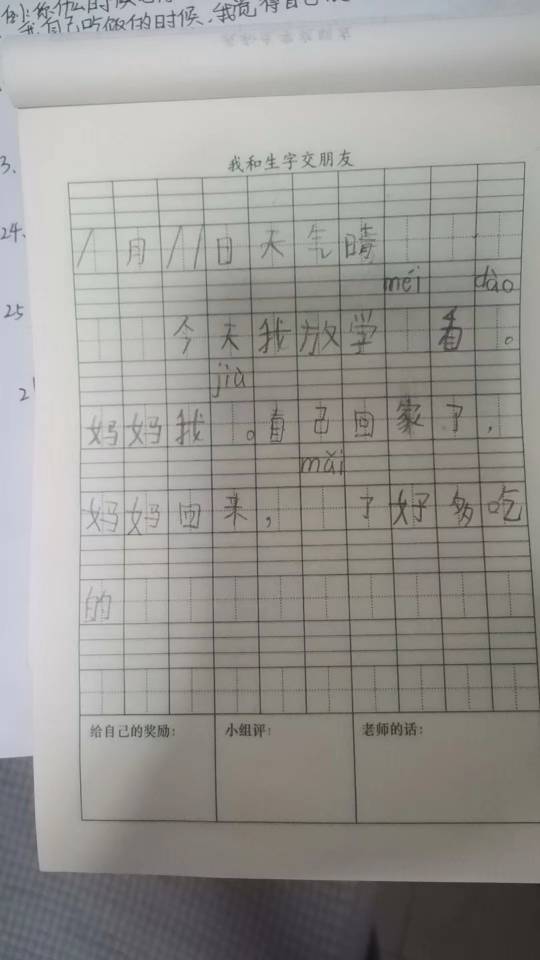 我自己吃做的时候，我觉得自己
3.
24.
25
我和生字交朋友
1月11日天气晴
méi dào
今天我放学 看。
jiù
妈妈我 。自己回家了，
mǎi
妈妈回来， 了好多吃
的
给自己的奖励： 小组评： 老师的话：